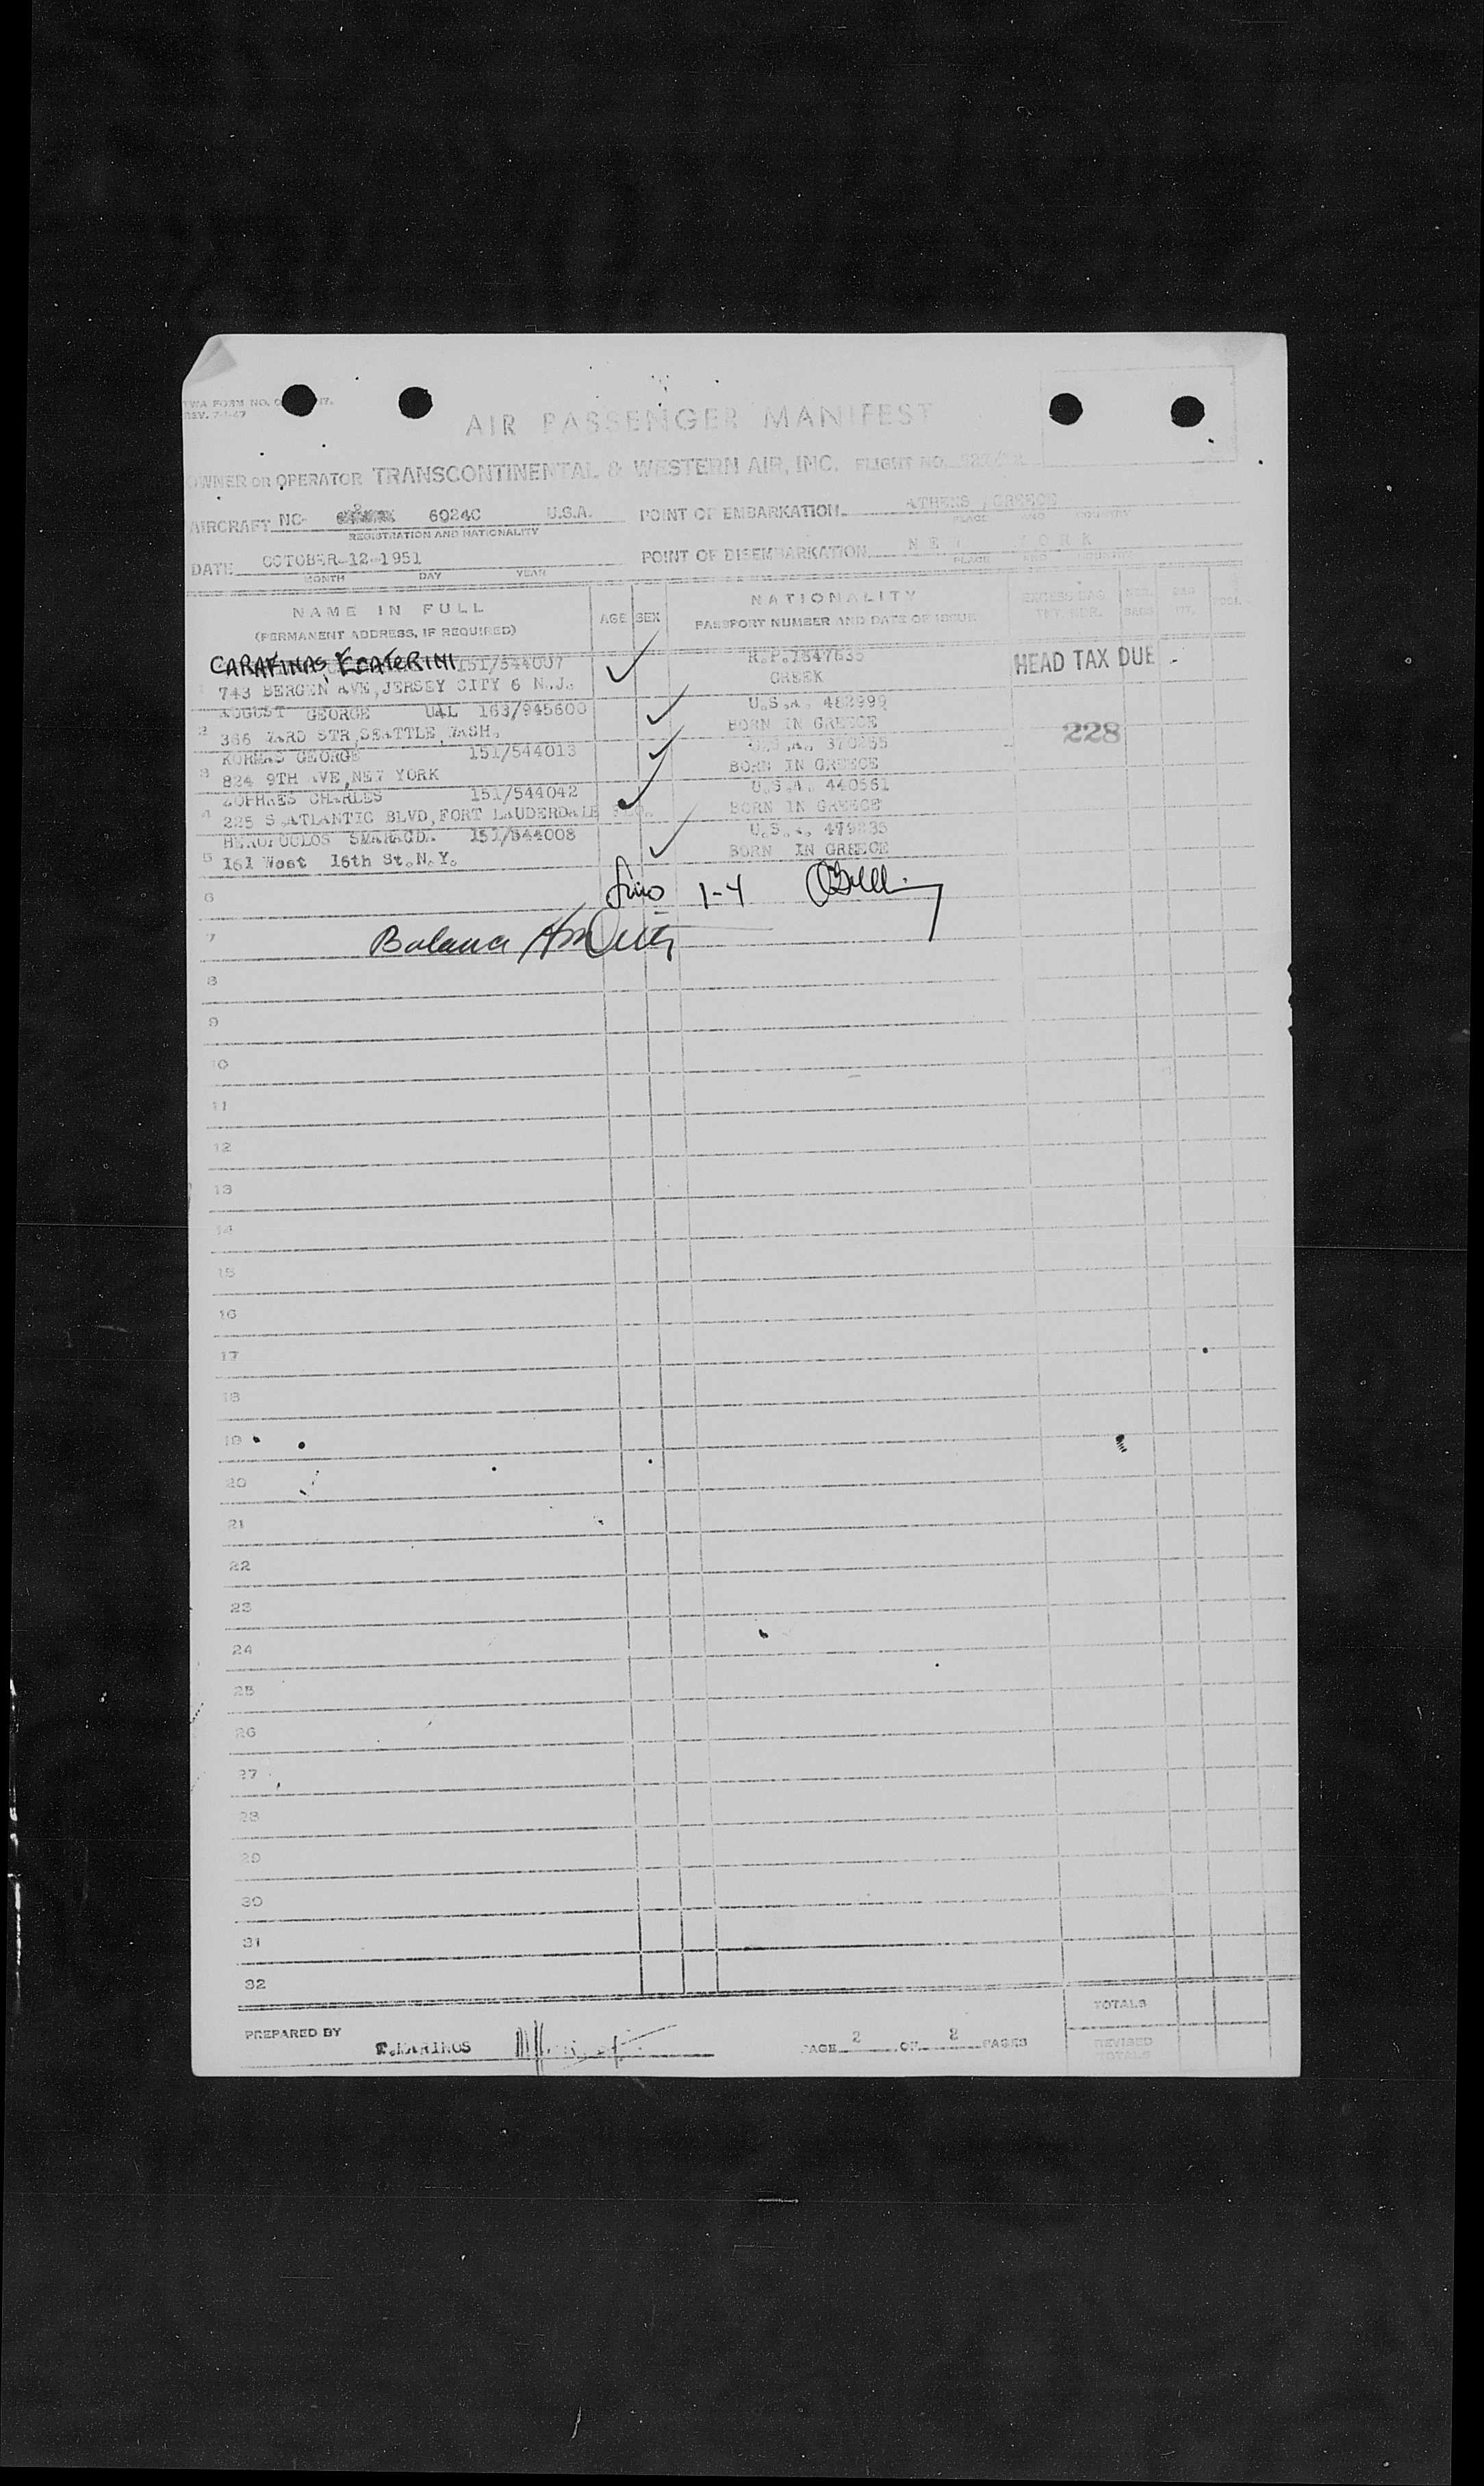 TWA FORM NO.
REV. 7-1-47
AIR PASSENGER MANIFEST
OWNER OR OPERATOR TRANSCONTINENTAL & WESTERN AIR, INC. FLIGHT NO.
AIRCRAFT NC- 6024C U.S.A. POINT OF EMBARKATION ATHENS, GREECE
REGISTRATION AND NATIONALITY PLACE AND COUNTRY
DATE OCTOBER-12-1951 POINT OF DISEMBARKATION NEW YORK
MONTH DAY YEAR PLACE AND COUNTRY
NAME IN FULL AGE SEX NATIONALITY EXCESS BAG
(PERMANENT ADDRESS, IF REQUIRED) PASSPORT NUMBER AND DATE OF ISSUE TKT. NBR. BAGS WT.
CARAFINAS, ECATERINI 151/544007 R.P.7847635 HEAD TAX DUE
1 743 BERGEN AVE, JERSEY CITY 6 N.J. GREEK
AUGUST GEORGE UAL 163/945600 U.S.A. 482999
2 366 WARD STR, SEATTLE, WASH. BORN IN GREECE 228
KORMAS GEORGE 151/544013 U.S.A.
3 824 9TH AVE, NEW YORK BORN IN GREECE
CHARLES 151/544042 U.S.A. 440561
4 225 S.ATLANTIC BLVD, FORT LAUDERDALE FLO. BORN IN GREECE
151/544008 U.S.A.
5 161 West 16th St. N.Y. BORN IN GREECE
6 1-4
7
8
9
10
11
12
13
14
15
16
17
18
19
20
21
22
23
24
25
26
27
28
29
30
31
32
TOTALS
PREPARED BY MARINOS PAGE 2 OF 2 PAGES REVISED
TOTALS